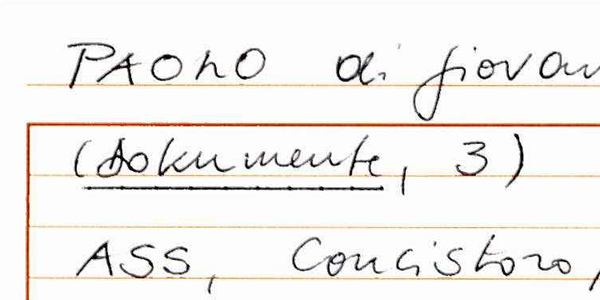 PAOLO di giovan
(Dokumente, 3)
ASS, Concistoro,